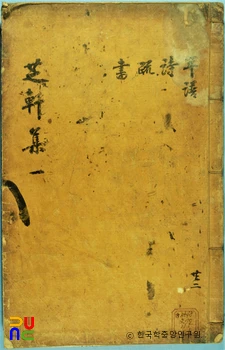 年譜
詩
疏
書
芝軒集 一
共二
PU
NC
ⓒ 한국학중앙연구원